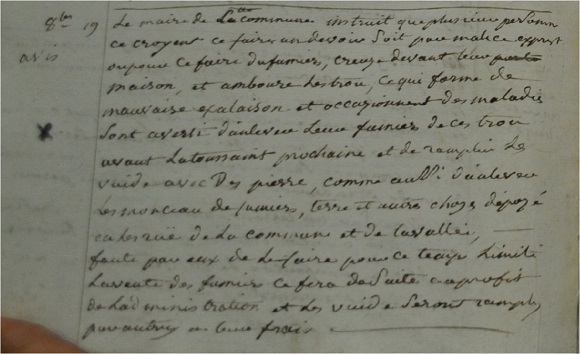 8bre 19
avis
Le maire de La commune instruit que plusieur personn
ce croyent ce faire un devoir soit pare malice express
ou pour ce faire du fumier, creuse devant leur porte
maison, et amboure des trou, ce qui forme de
mauvaise exalaison et occasionnent des maladie
sont averti d'anlever leur fumier de ces trou
avant La toussaint prochaine et de ramplir les
vuide avec Des pierre, comme aussi d'anlever
les monceau de fumier, terre et autre chose dépozé
en les rüe de La commune et de la vallée,
faute pare eux de le faire pour ce temps Limité
La vente des fumier ce fera de suite au profit
de L'administration et les vuide seront ramply
par autruy a leur frais